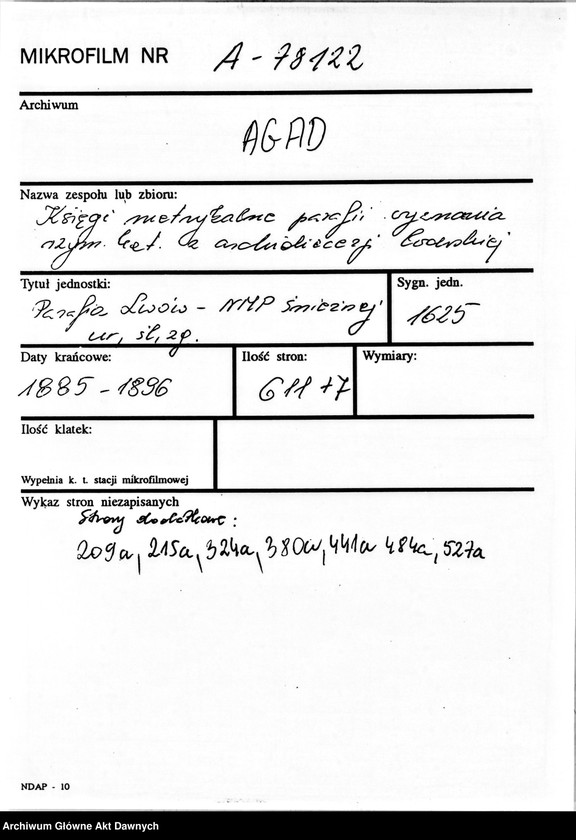 MIKROFILM NR A-78122
Archiwum
AGAD
Nazwa zespołu lub zbioru:
Księgi metrykalne parafii wyznania
rzym. kat. z archidiecezji lwowskiej
Tytuł jednostki:
Parafia Lwów - NMP Śnieżnej
ur, śl, zg.
Sygn. jedn.
1625
Daty krańcowe:
1885 - 1896
Ilość stron:
611 +7
Wymiary:
Ilość klatek:
Wypełnia k. t. stacji mikrofilmowej
Wykaz stron niezapisanych
Strony dodatkowe:
209a, 215a, 324a, 380a, 441a 484a, 527a
NDAP - 10
Archiwum Główne Akt Dawnych